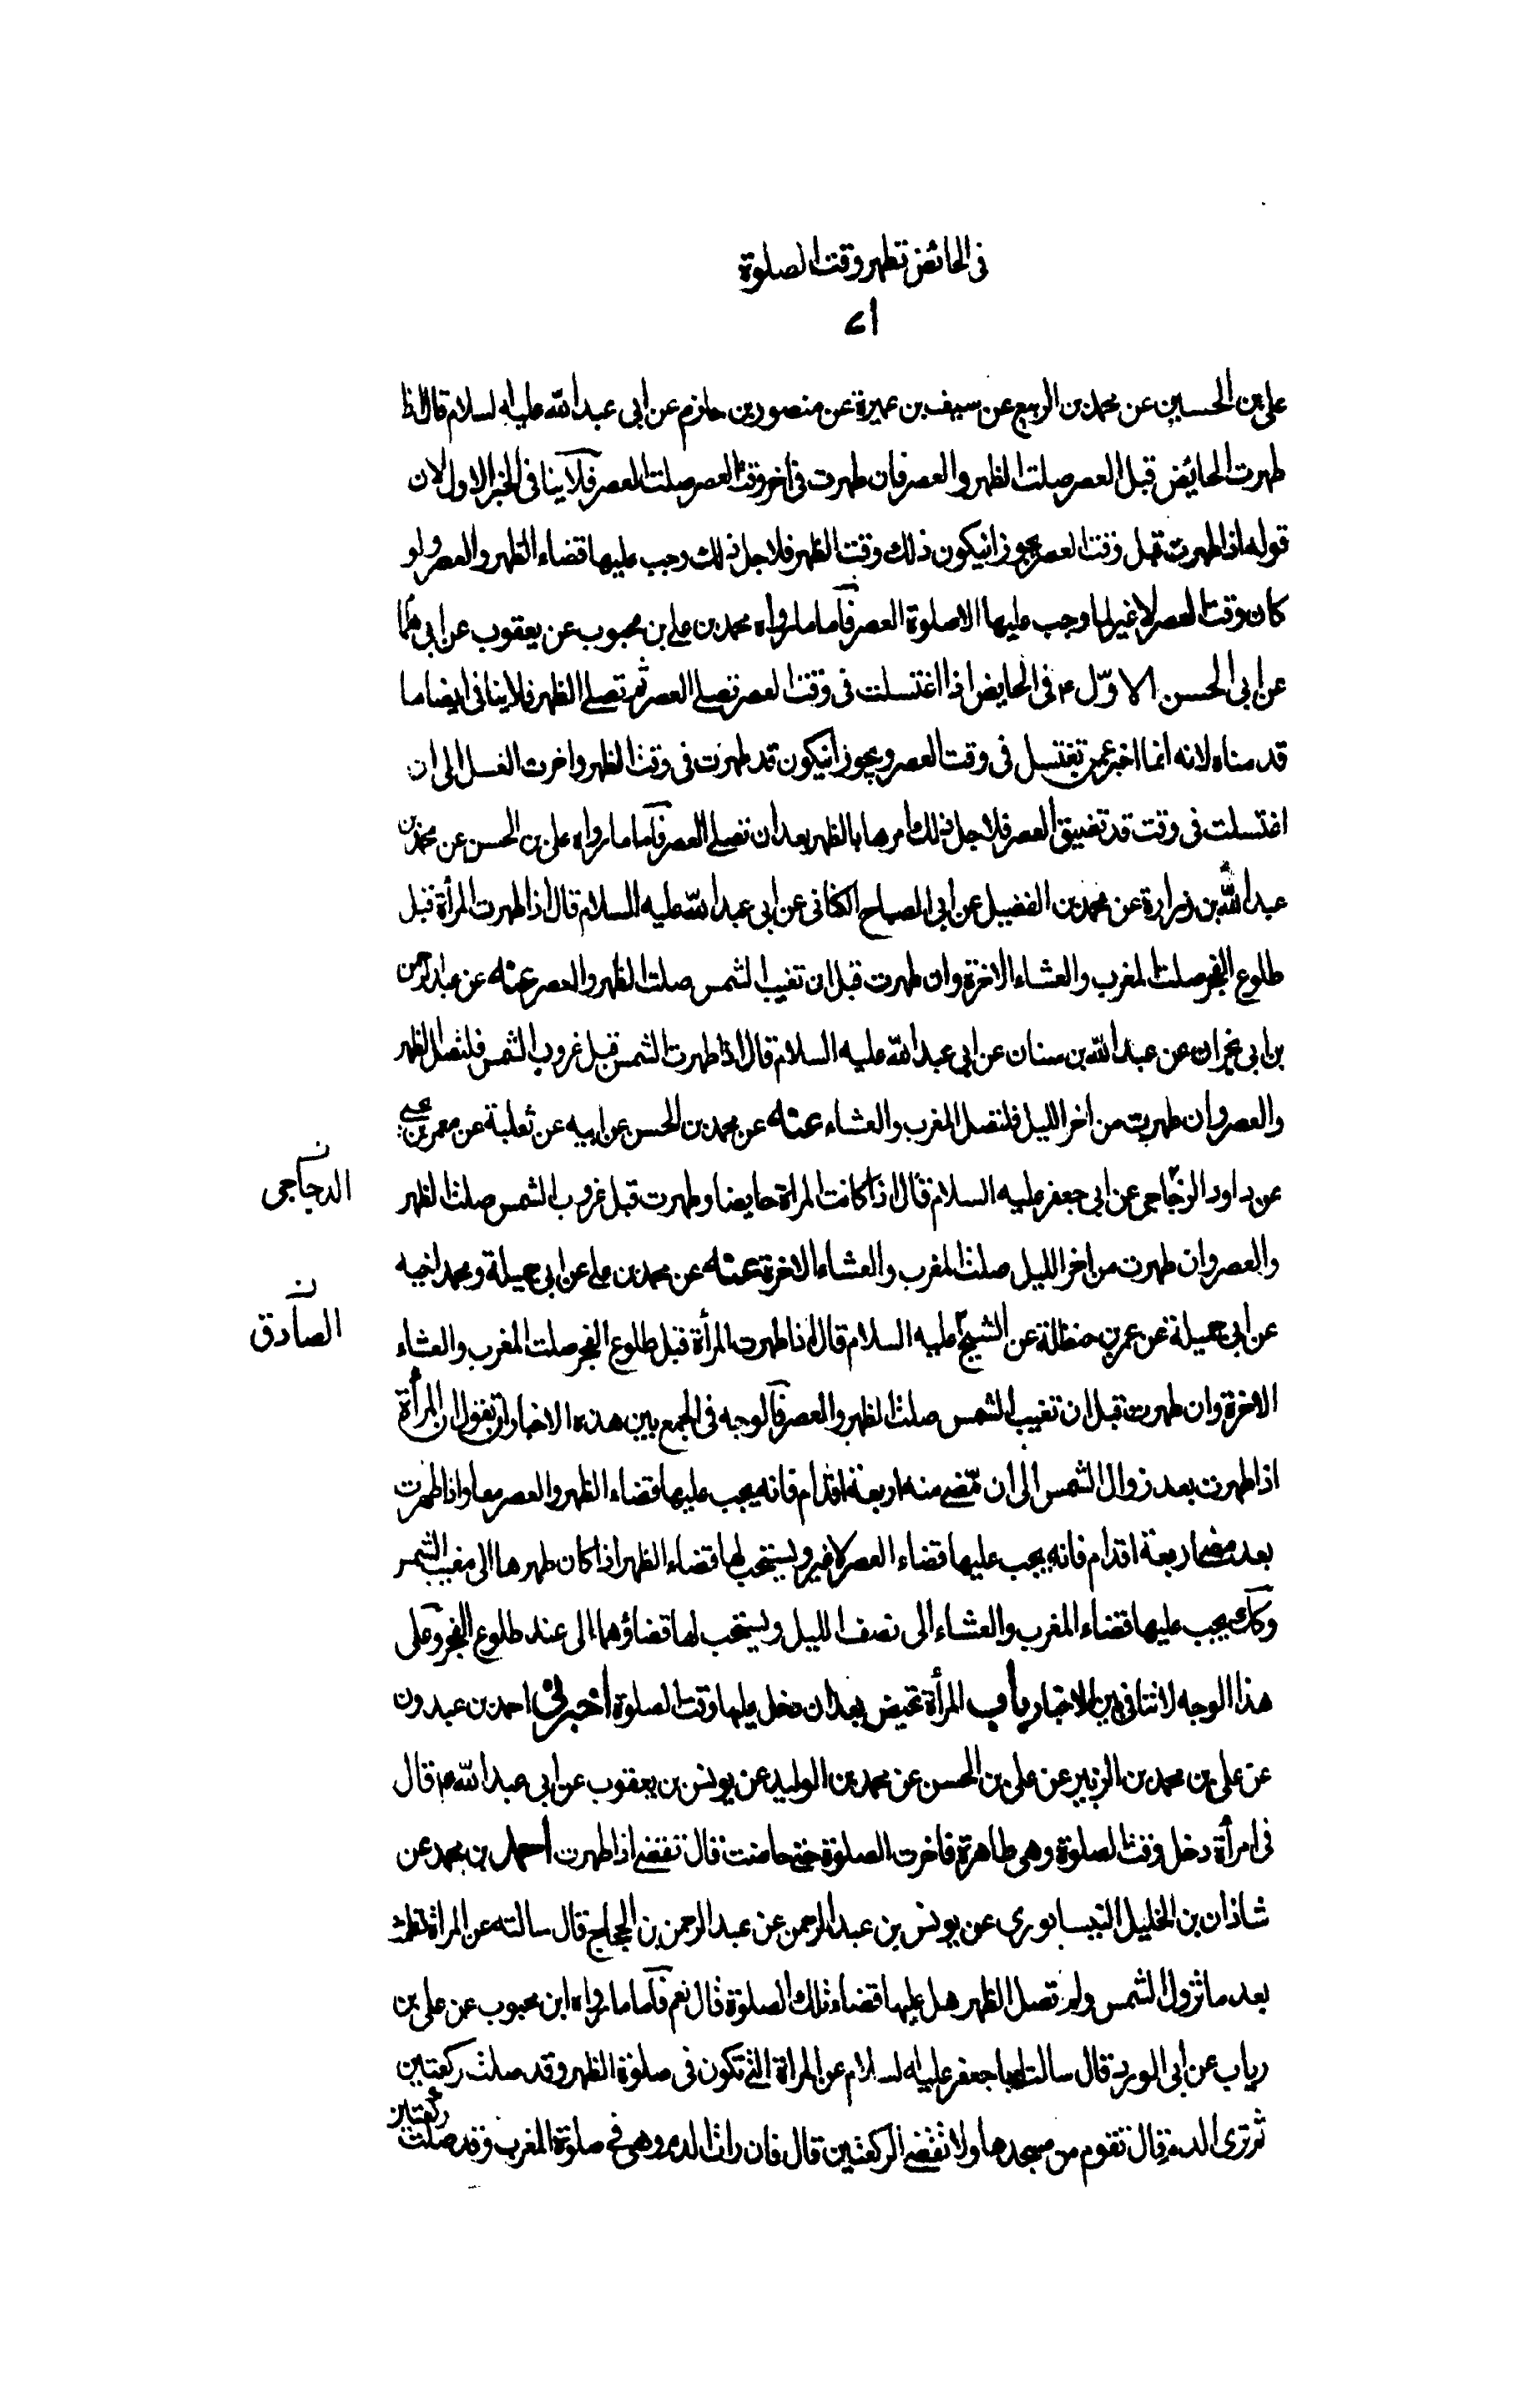 فی الحائض تطهر وقت الصلوة
٧١
علی بن الحسین عن محمد بن الربیع عن سیف بن عمیرة عن منصور بن حازم عن ابی عبد الله علیه السلام قال اذا
طهرت الحائض قبل العصر صلت الظهر والعصر فان طهرت فی اخر وقت العصر صلت العصر فلا ینافی الخبر الاول لان
قوله اذا طهرت قبل وقت العصر یجوز ان یکون ذلک وقت الظهر فلاجل ذلک وجب علیها قضاء الظهر والعصر ولو
کان وقت العصر لا غیر لما وجب علیها الا صلوة العصر فاما ما رواه محمد بن علی بن محبوب عن یعقوب عن ابی همام
عن ابی الحسن الاول ع فی الحایض اذا اغتسلت فی وقت العصر تصلی العصر ثم تصلی الظهر فلا ینافی ایضا ما
قدمناه لانه انما اخبر عمن تغتسل فی وقت العصر ویجوز ان یکون قد طهرت فی وقت الظهر واخرت الغسل الی ان
اغتسلت فی وقت قد تضیق العصر فلاجل ذلک امرها بالظهر بعد ان تصلی العصر فاما ما رواه علی بن الحسن عن محمد بن
عبد الله بن زرارة عن محمد بن الفضیل عن ابی الصباح الکنانی عن ابی عبد الله علیه السلام قال اذا طهرت المرأة قبل
طلوع الفجر صلت المغرب والعشاء الاخرة وان طهرت قبل ان تغیب الشمس صلت الظهر والعصر عنه عن عبد الرحمن
بن ابی نجران عن عبد الله بن سنان عن ابی عبد الله علیه السلام قال اذا طهرت الشمس قبل غروب الشمس فلتصل الظهر
والعصر وان طهرت من اخر اللیل فلتصل المغرب والعشاء عنه عن محمد بن الحسن عن ابیه عن ثعلبة عن معمر بن یحیی
عن داود الزجاجی عن ابی جعفر علیه السلام قال اذا کانت المراة حایضا وطهرت قبل غروب الشمس صلت الظهر
الدجاجی ن
والعصر وان طهرت من اخر اللیل صلت المغرب والعشاء الاخرة عنه عن محمد بن علی عن ابی جمیلة ومحمد اخیه
عن ابی جمیلة عن عمر بن حنظلة عن الشیخ علیه السلام قال اذا طهرت المرأة قبل طلوع الفجر صلت المغرب والعشاء
الصادق ن
الاخرة وان طهرت قبل ان تغیب الشمس صلت الظهر والعصر فالوجه فی الجمع بین هذه الاخبار ان نقول ان المرأة
اذا طهرت بعد زوال الشمس الی ان تمضی منه اربعة اقدام فانه یجب علیها قضاء الظهر والعصر معا واذا طهرت
بعد مضی اربعة اقدام فانه یجب علیها قضاء العصر لا غیر ویستحب لها قضاء الظهر اذا کان طهرها الی مغیب الشمس
وکک یجب علیها قضاء المغرب والعشاء الی نصف اللیل ویستحب لها قضاؤهما الی عند طلوع الفجر وعلی
هذا الوجه لا تنافی بین الاخبار باب المرأة تحیض بعد ان دخل علیها وقت الصلوة اخبرنی احمد بن عبدون
عن علی بن محمد بن الزبیر عن علی بن الحسن عن محمد بن الولید عن یونس بن یعقوب عن ابی عبد الله ع قال
فی امرأة دخل وقت الصلوة وهی طاهرة فاخرت الصلوة حتی حاضت قال تقضی اذا طهرت احمد بن محمد عن
شاذان بن الخلیل النیسابوری عن یونس بن عبد الرحمن عن عبد الرحمن بن الحجاج قال سالته عن المراة تطمث
بعد ما تزول الشمس ولم تصل الظهر هل علیها قضاء تلک الصلوة قال نعم فاما ما رواه ابن محبوب عن علی بن
ریاب عن ابی الورد قال سالت ابا جعفر علیه السلام عن المراة التی تکون فی صلوة الظهر وقد صلت رکعتین
ثم تری الدم قال تقوم من مسجدها ولا تقضی الرکعتین قال فان رات الدم وهی فی صلوة المغرب وقد صلت رکعتین